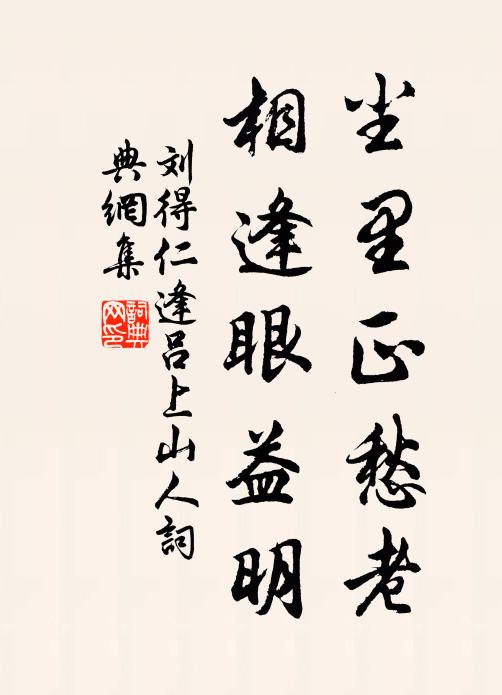 尘里正愁老
相逢眼益明
刘得仁逢吕上山人詞
典網集
詞典
网印